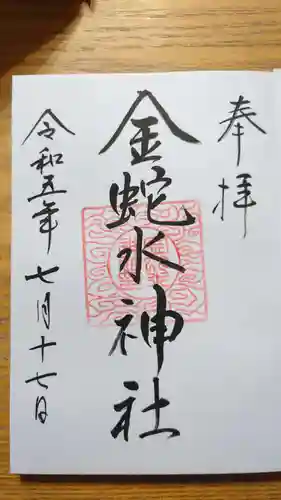 奉拝
金蛇水神社
令和五年七月十七日